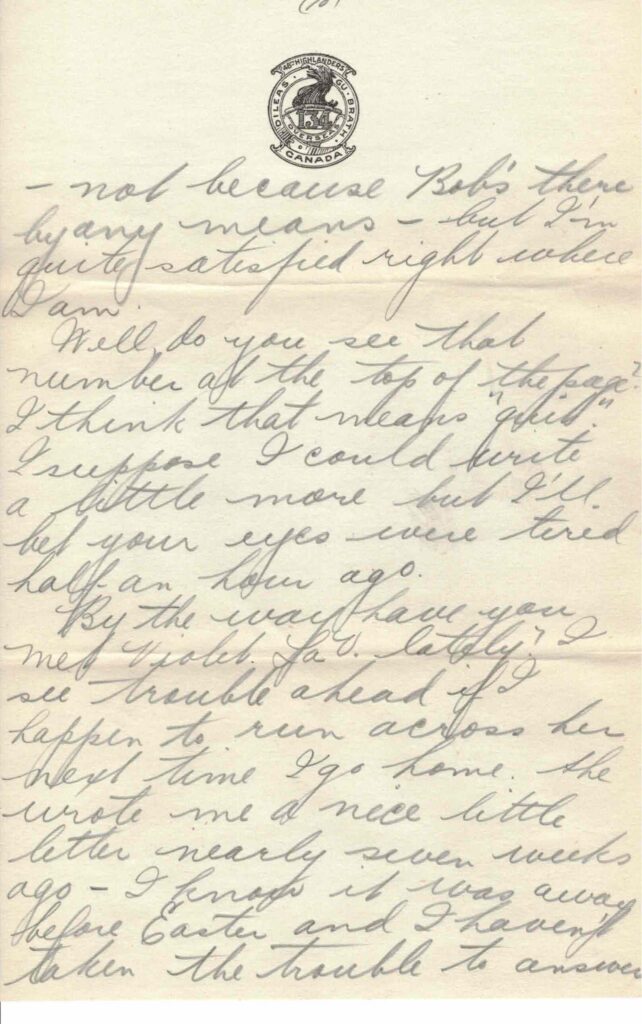 48TH HIGHLANDERS
DILEAS GU BRATH
134
OVERSEAS
CANADA
- not because Bob's there
by any means - but I'm
quite satisfied right where
I am.
Well, do you see that
number at the top of the page?
I think that means "quit."
I suppose I could write
a little more but I'll
bet your eyes were tired
half an hour ago.
By the way have you
met Violet La V. lately? I
see trouble ahead if I
happen to run across her
next time I go home. She
wrote me a nice little
letter nearly seven weeks
ago - I know it was away
before Easter and I haven't
taken the trouble to answer